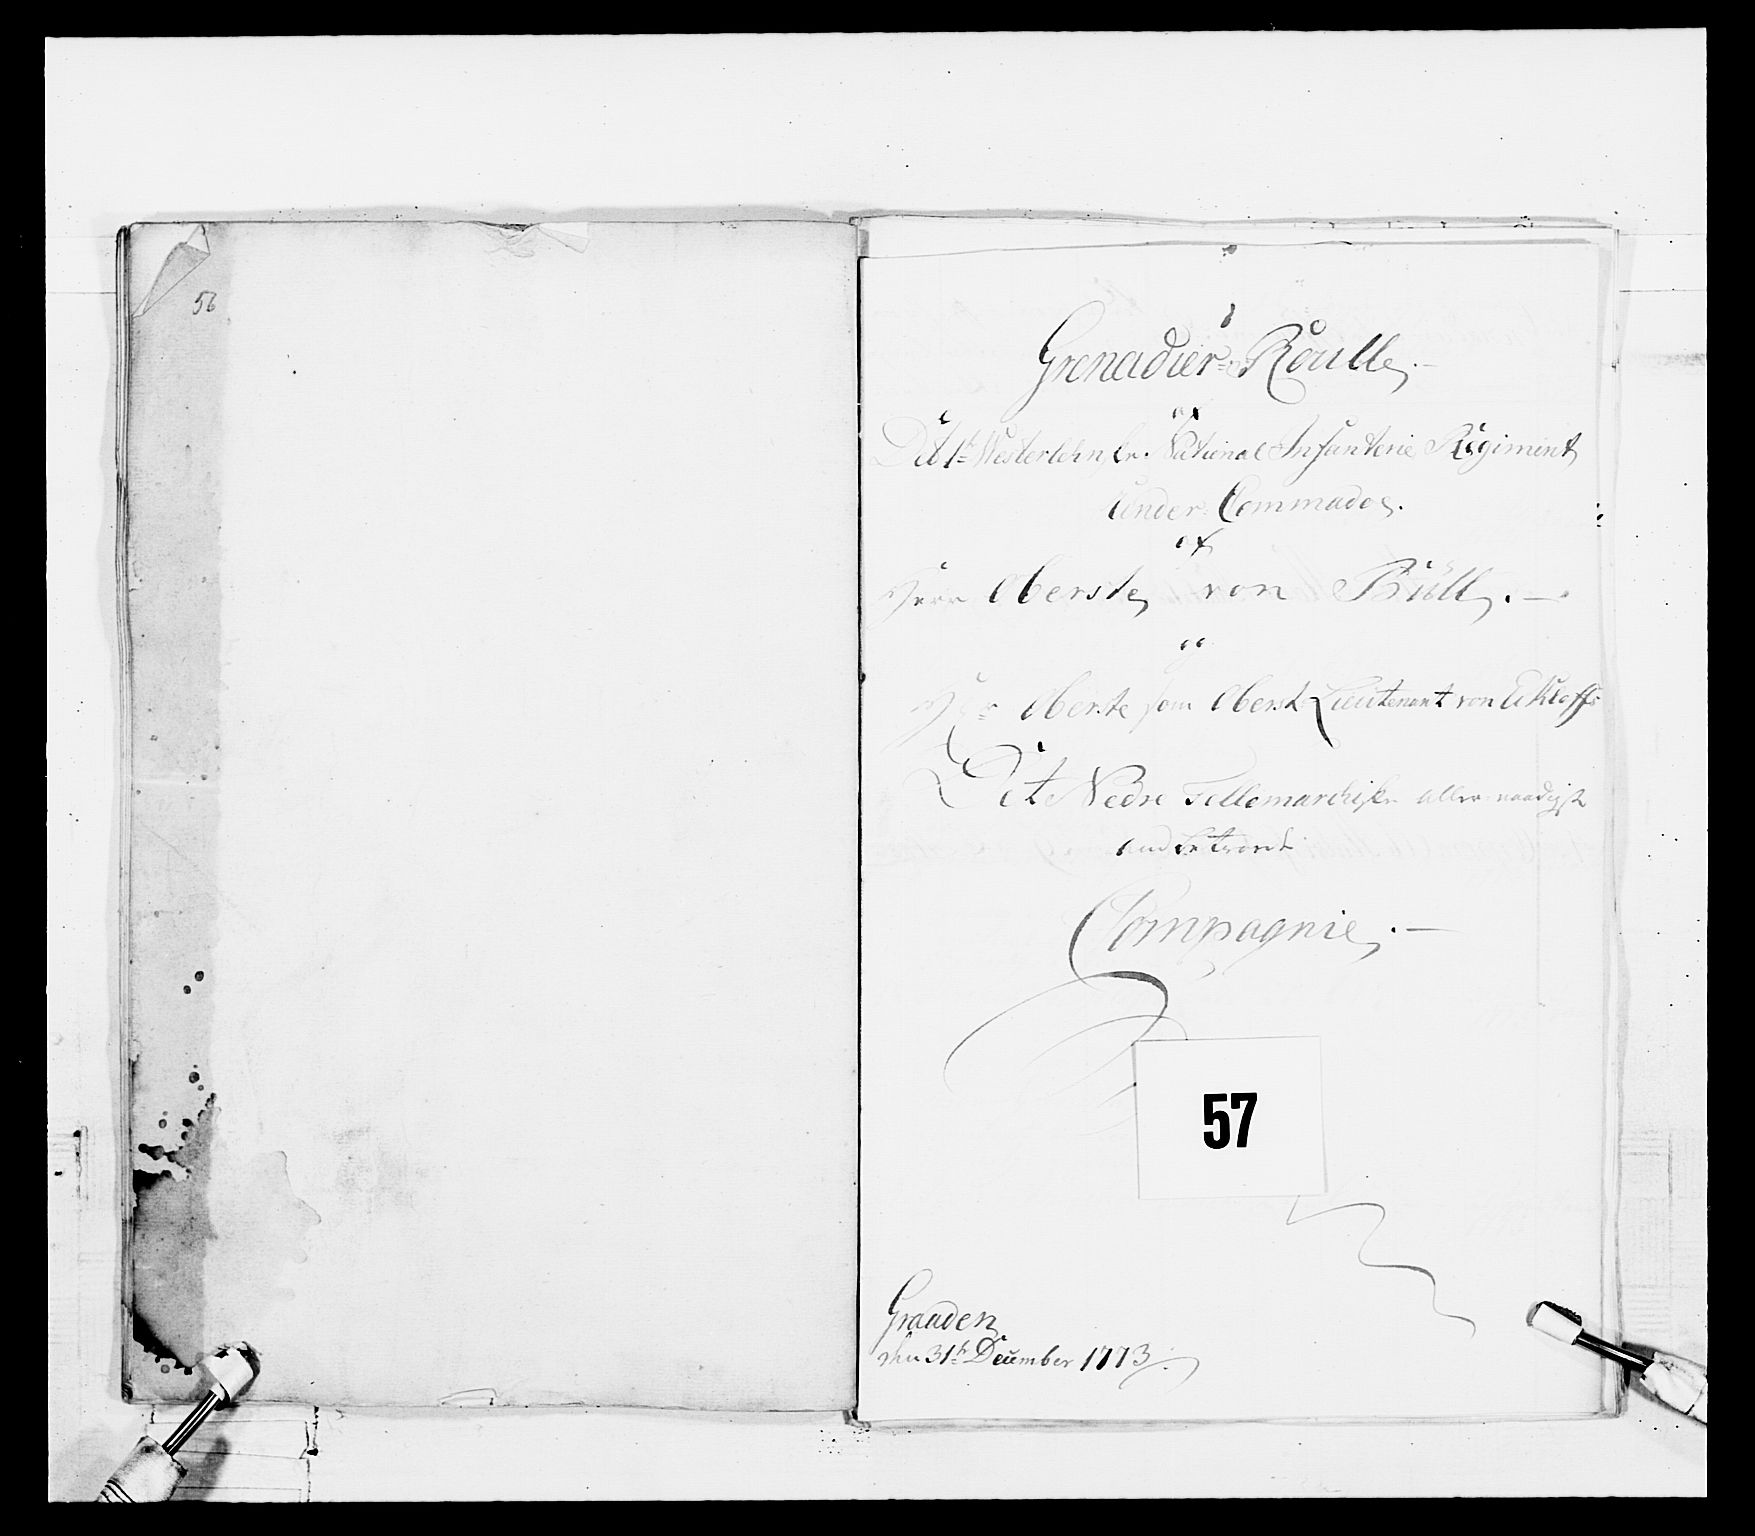 56
Grenadier-Roulle.
af
Det 1te Westerlehnske National Infanterie Regiment
Under Commados.
af
Herr Oberste von Bülle.
og
Herr Oberste som Oberst Lieutenant von
Det Nedre Tellemarchiske allernaadigst
anbetroede
Compagnie.
57
Graaden
den 31te December 1773